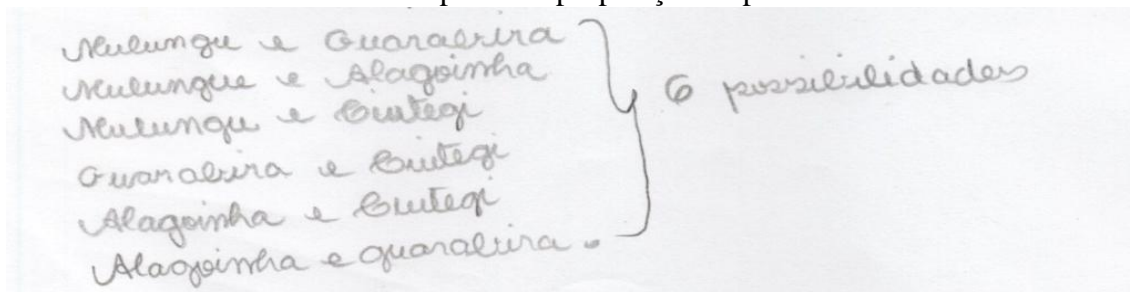 Mulungu e Guarabira
Mulungue e Alagoinha
Mulungu e Cuitegi
Guarabira e Cuitegi
Alagoinha e Cuitegi
Alagoinha e guarabira.
6 possibilidades